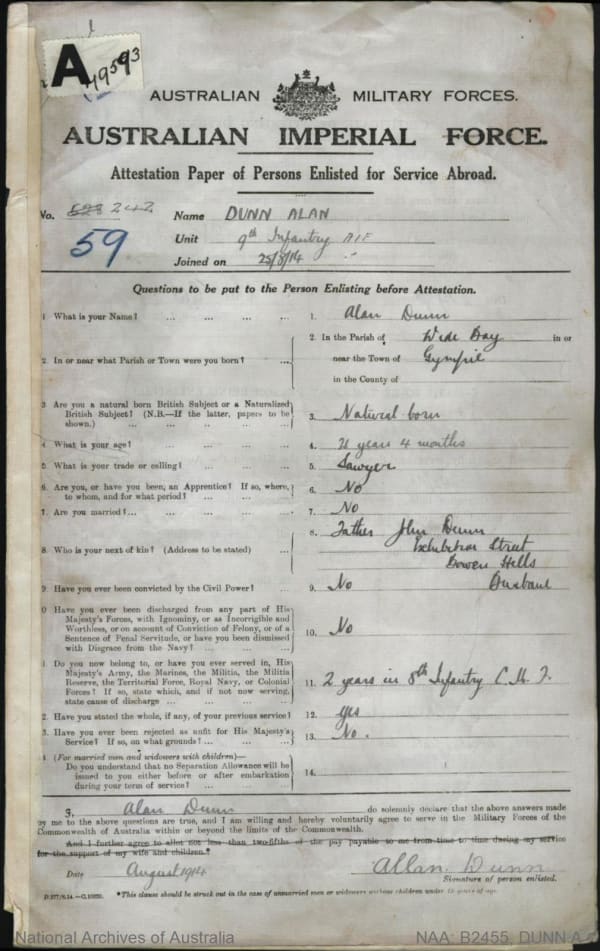 A 49593
AUSTRALIAN MILITARY FORCES.
AUSTRALIAN IMPERIAL FORCE.
Attestation Paper of Persons Enlisted for Service Abroad.
No. 242 Name DUNN ALAN
59 Unit 9th Infantry AIF
Joined on 25/8/14
Questions to be put to the Person Enlisting before Attestation.
1 What is your Name? ... ... ... ... 1. Alan Dunn
2. In or near what Parish or Town were you born? ... 2. In the Parish of Wide Bay in or
near the Town of Gympie
in the County of
3 Are you a natural born British Subject or a Naturalized
British Subject? (N.B.—If the latter, papers to be
shown.) ... ... ... ... 3. Natural born
4. What is your age? ... ... ... ... 4. 21 years 4 months
5. What is your trade or calling? ... ... ... 5. Sawyer
6. Are you, or have you been, an Apprentice? If so, where,
to whom, and for what period? ... ... ... 6. No
7. Are you married? ... ... ... ... 7. No
8. Who is your next of kin? (Address to be stated) ... 8. Father John Dunn
Exhibition Street
Bowen Hills
Brisbane
9. Have you ever been convicted by the Civil Power? ... 9. No
0 Have you ever been discharged from any part of His
Majesty's Forces, with Ignominy, or as Incorrigible and
Worthless, or on account of Conviction of Felony, or of a
Sentence of Penal Servitude, or have you been dismissed
with Disgrace from the Navy? ... ... ... 10. No
1. Do you now belong to, or have you ever served in, His
Majesty's Army, the Marines, the Militia, the Militia
Reserve, the Territorial Force, Royal Navy, or Colonial
Forces? If so, state which, and if not now serving,
state cause of discharge ... ... ... 11. 2 years in 8th Infantry C.M.F.
2. Have you stated the whole, if any, of your previous service? 12. yes
3. Have you ever been rejected as unfit for His Majesty's
Service? If so, on what grounds? ... ... ... 13. No.
4. (For married men and widowers with children)—
Do you understand that no Separation Allowance will be
issued to you either before or after embarkation
during your term of service? ... ... ... 14.
I, Alan Dunn do solemnly declare that the above answers made
by me to the above questions are true, and I am willing and hereby voluntarily agree to serve in the Military Forces of the
Commonwealth of Australia within or beyond the limits of the Commonwealth.
And I further agree to allot not less than two-fifths of the pay payable to me from time to time during my service
for the support of my wife and children.*
Date August 1914 Allan Dunn
Signature of person enlisted.
*This clause should be struck out in the case of unmarried men or widowers without children under 18 years of age.
National Archives of Australia NAA: B2455, DUNN A